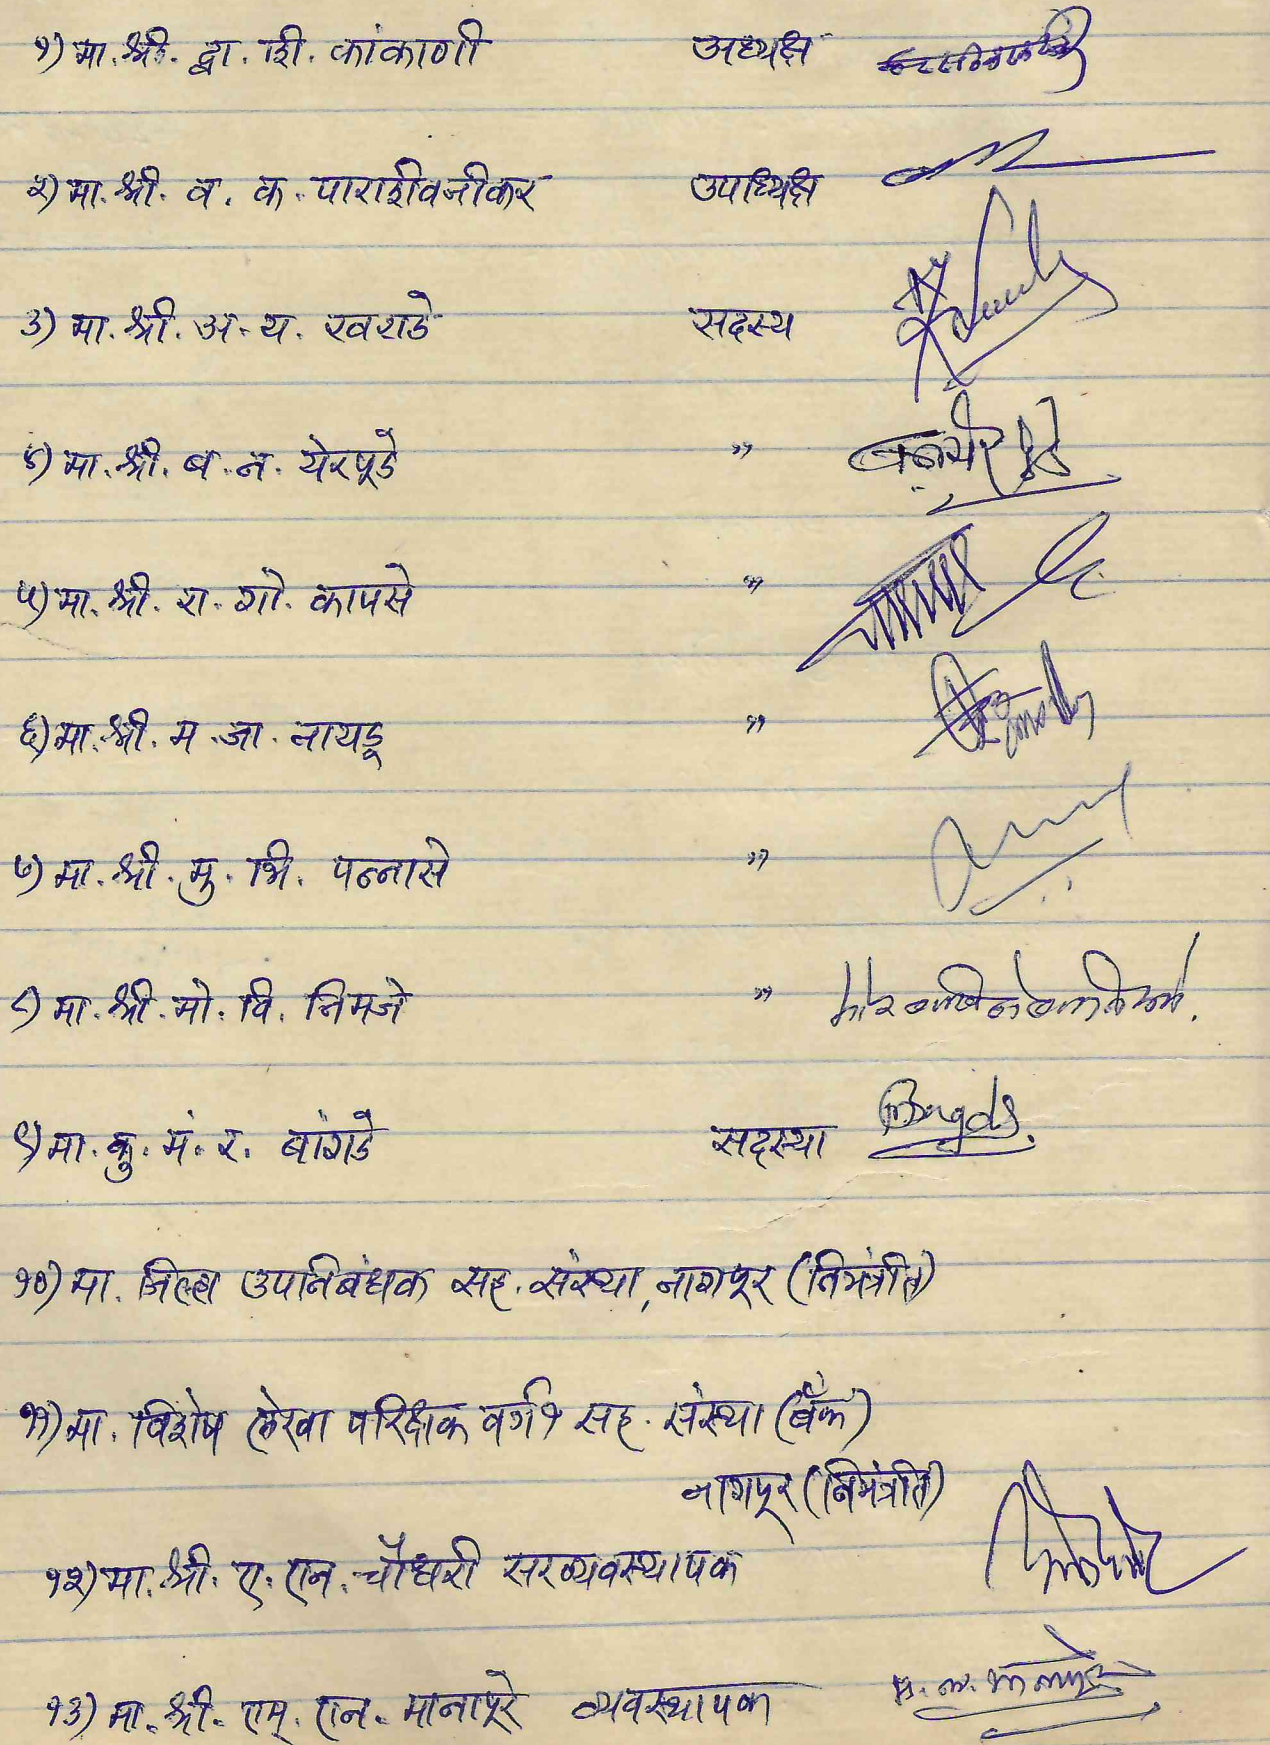 १) मा. श्री. द्वा. शि. कांकाणी अध्यक्ष
२) मा. श्री. व. क. पाराशीवजीकर उपाध्यिक्ष
३) मा. श्री. अ. य. खवराडे सदस्य
४) मा. श्री. ब. न. येरपूडे "
५) मा. श्री. रा. गो. कापसे "
६) मा. श्री. म. जा. नायडू "
७) मा. श्री. मु. भि. पन्नासे "
८) मा. श्री. मो. वि. निमजे "
९) मा. कु. मं. र. बांगडे सदस्या
१०) मा. जिल्हा उपनिबंधक सह. संस्था, नागपूर (निमंत्रीत)
११) मा. विशेष लेखा परिक्षक वर्ग १ सह. संस्था (बँक)
नागपूर (निमंत्रीत)
१२) मा. श्री. ए. एन. चौधरी सरव्यवस्थापक
१३) मा. श्री. एम्. एन. मानापूरे व्यवस्थापक